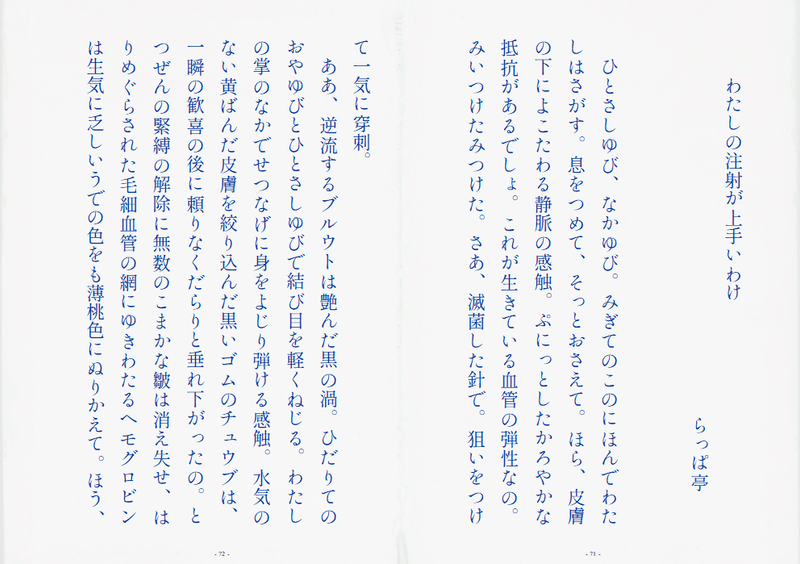 わたしの注射が上手いわけ
らっぱ亭
ひとさしゆび、なかゆび。みぎてのこのにほんでわた
しはさがす。息をつめて、そっとおさえて。ほら、皮膚
の下によこたわる静脈の感触。ぷにっとしたかろやかな
抵抗があるでしょ。これが生きている血管の弾性なの。
みいつけたみつけた。さあ、滅菌した針で。狙いをつけ
- 71 -
て一気に穿刺。
ああ、逆流するブルウトは艶んだ黒の渦。ひだりての
おやゆびとひとさしゆびで結び目を軽くねじる。わたし
の掌のなかでせつなげに身をよじり弾ける感触。水気の
ない黄ばんだ皮膚を絞り込んだ黒いゴムのチュウブは、
一瞬の歓喜の後に頼りなくだらりと垂れ下がったの。と
つぜんの緊縛の解除に無数のこまかな皺は消え失せ、は
りめぐらされた毛細血管の網にゆきわたるヘモグロビン
は生気に乏しいうでの色をも薄桃色にぬりかえて。ほう、
- 72 -